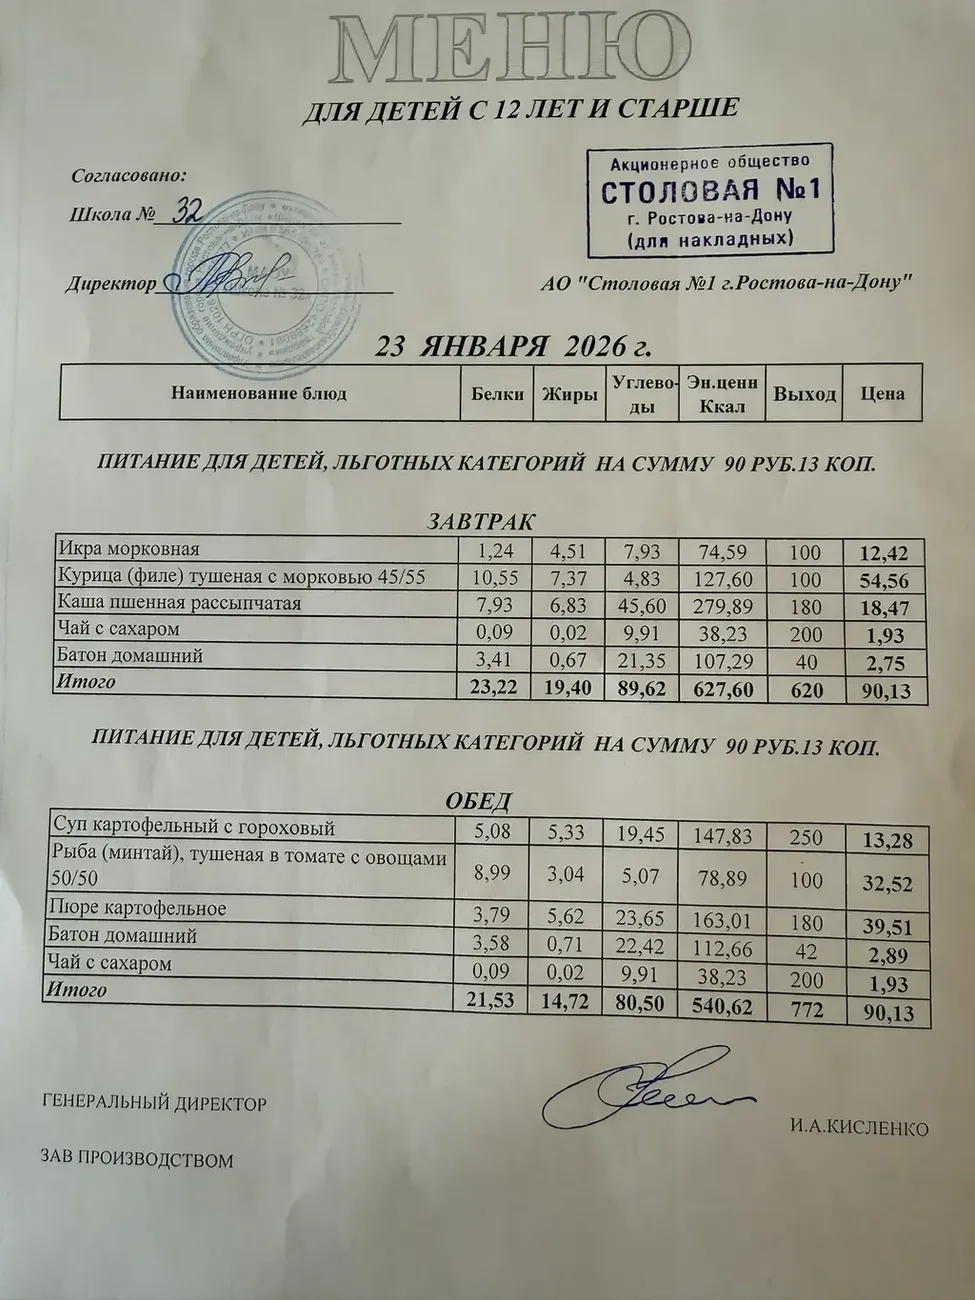 МЕНЮ
ДЛЯ ДЕТЕЙ С 12 ЛЕТ И СТАРШЕ
Согласовано:
Школа № 32
Директор
Акционерное общество
СТОЛОВАЯ №1
г. Ростова-на-Дону
(для накладных)
АО "Столовая №1 г.Ростова-на-Дону"
23 ЯНВАРЯ 2026 г.
Наименование блюд Белки Жиры Углево-ды Эн.ценн Ккал Выход Цена
ПИТАНИЕ ДЛЯ ДЕТЕЙ, ЛЬГОТНЫХ КАТЕГОРИЙ НА СУММУ 90 РУБ.13 КОП.
ЗАВТРАК
Икра морковная 1,24 4,51 7,93 74,59 100 12,42
Курица (филе) тушеная с морковью 45/55 10,55 7,37 4,83 127,60 100 54,56
Каша пшенная рассыпчатая 7,93 6,83 45,60 279,89 180 18,47
Чай с сахаром 0,09 0,02 9,91 38,23 200 1,93
Батон домашний 3,41 0,67 21,35 107,29 40 2,75
Итого 23,22 19,40 89,62 627,60 620 90,13
ПИТАНИЕ ДЛЯ ДЕТЕЙ, ЛЬГОТНЫХ КАТЕГОРИЙ НА СУММУ 90 РУБ.13 КОП.
ОБЕД
Суп картофельный с гороховый 5,08 5,33 19,45 147,83 250 13,28
Рыба (минтай), тушеная в томате с овощами
50/50 8,99 3,04 5,07 78,89 100 32,52
Пюре картофельное 3,79 5,62 23,65 163,01 180 39,51
Батон домашний 3,58 0,71 22,42 112,66 42 2,89
Чай с сахаром 0,09 0,02 9,91 38,23 200 1,93
Итого 21,53 14,72 80,50 540,62 772 90,13
ГЕНЕРАЛЬНЫЙ ДИРЕКТОР
И.А.КИСЛЕНКО
ЗАВ ПРОИЗВОДСТВОМ